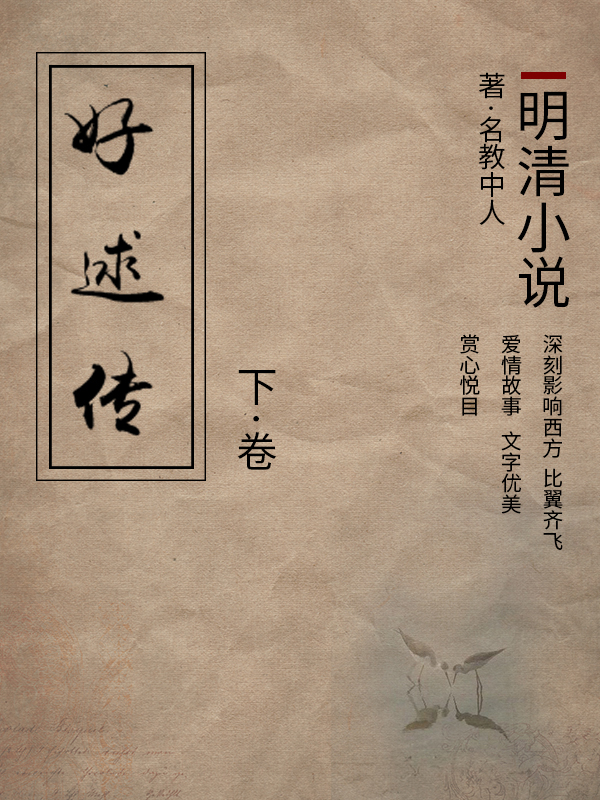 明清小说
著·名教中人
深刻影响西方 比翼齐飞
爱情故事 文字优美
赏心悦目
下·卷
好逑传